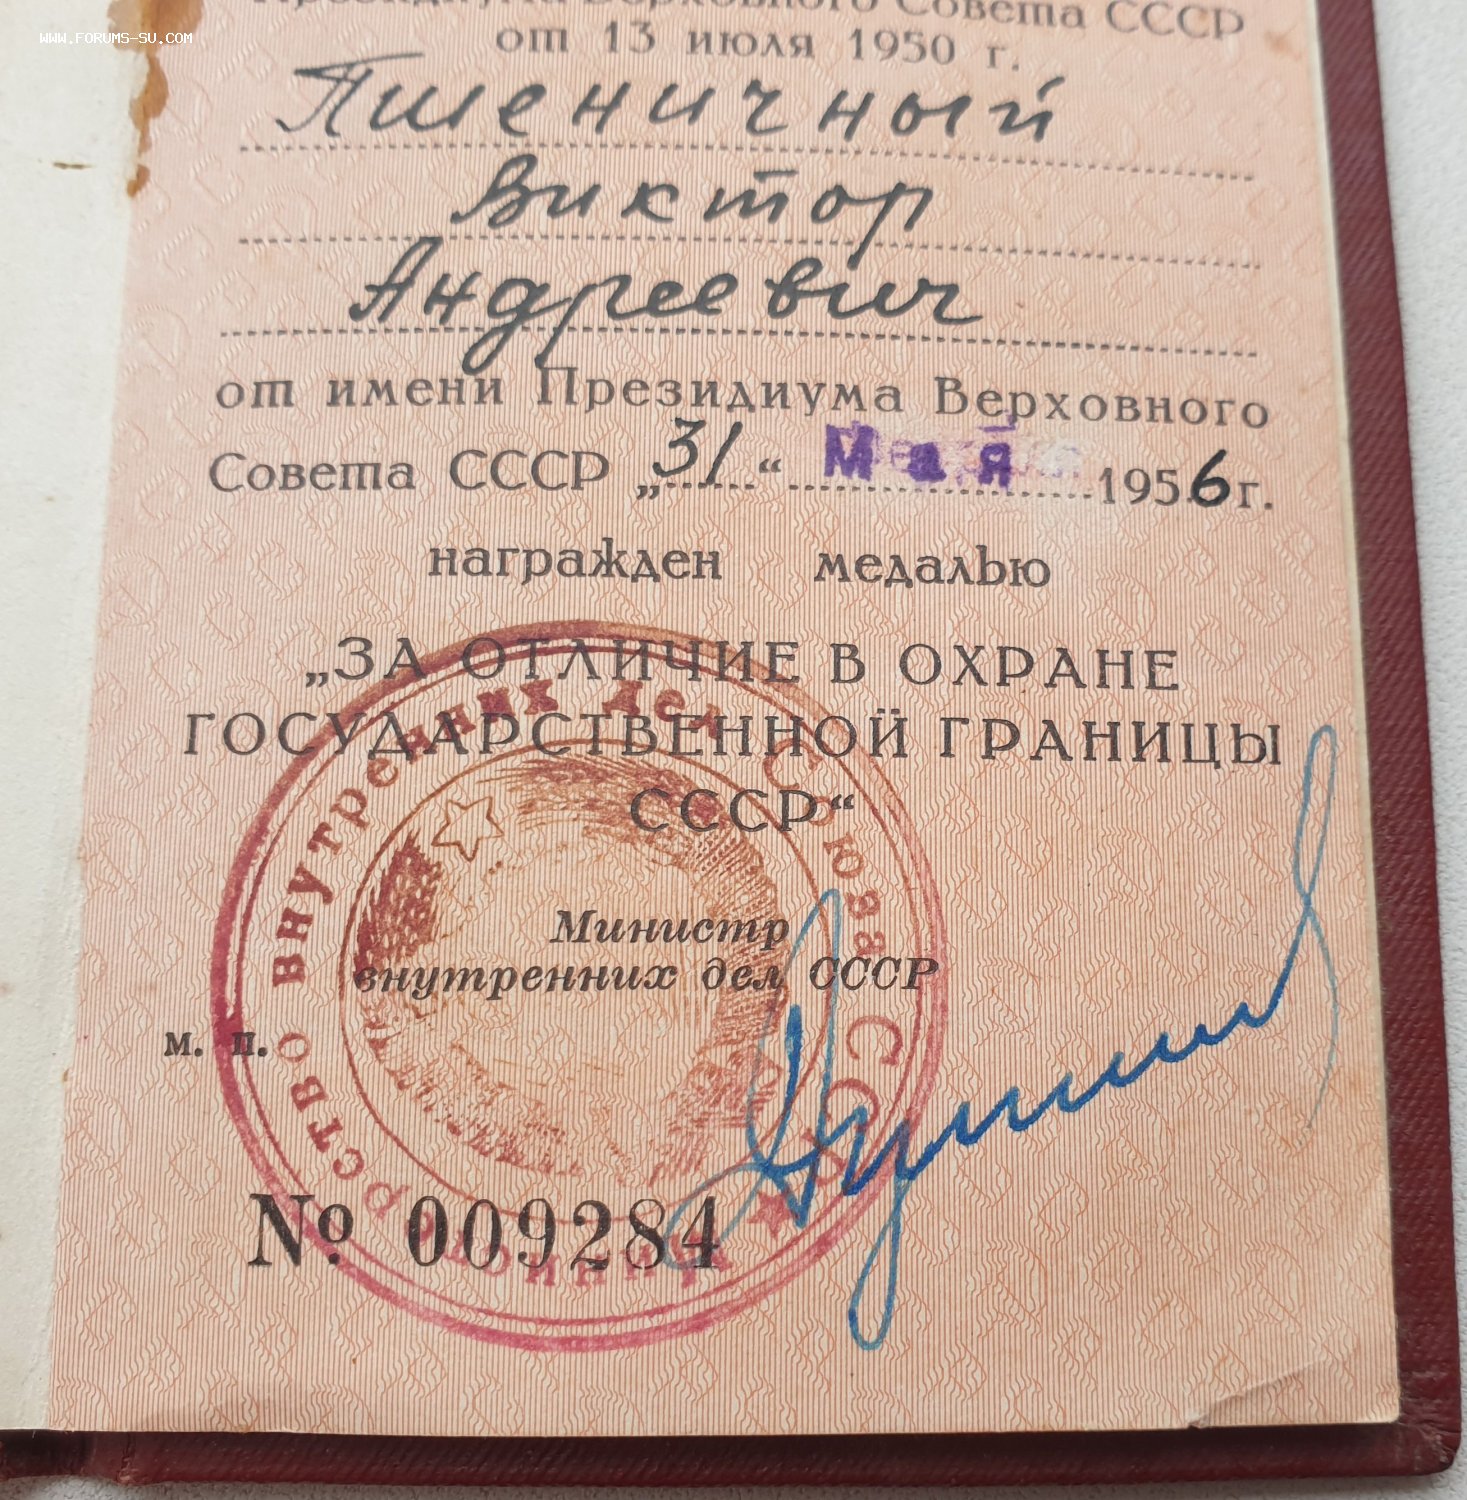 WWW.FORUMS-SU.COM
Президиума Верховного Совета СССР
от 13 июля 1950 г.
Пшеничный
Виктор
Андреевич
от имени Президиума Верховного
Совета СССР „31“ Мая 1956 г.
награжден медалью
„ЗА ОТЛИЧИЕ В ОХРАНЕ
ГОСУДАРСТВЕННОЙ ГРАНИЦЫ
СССР“
Министр
внутренних дел СССР
м. п.
№ 009284
Министерство внутренних дел Союза ССР